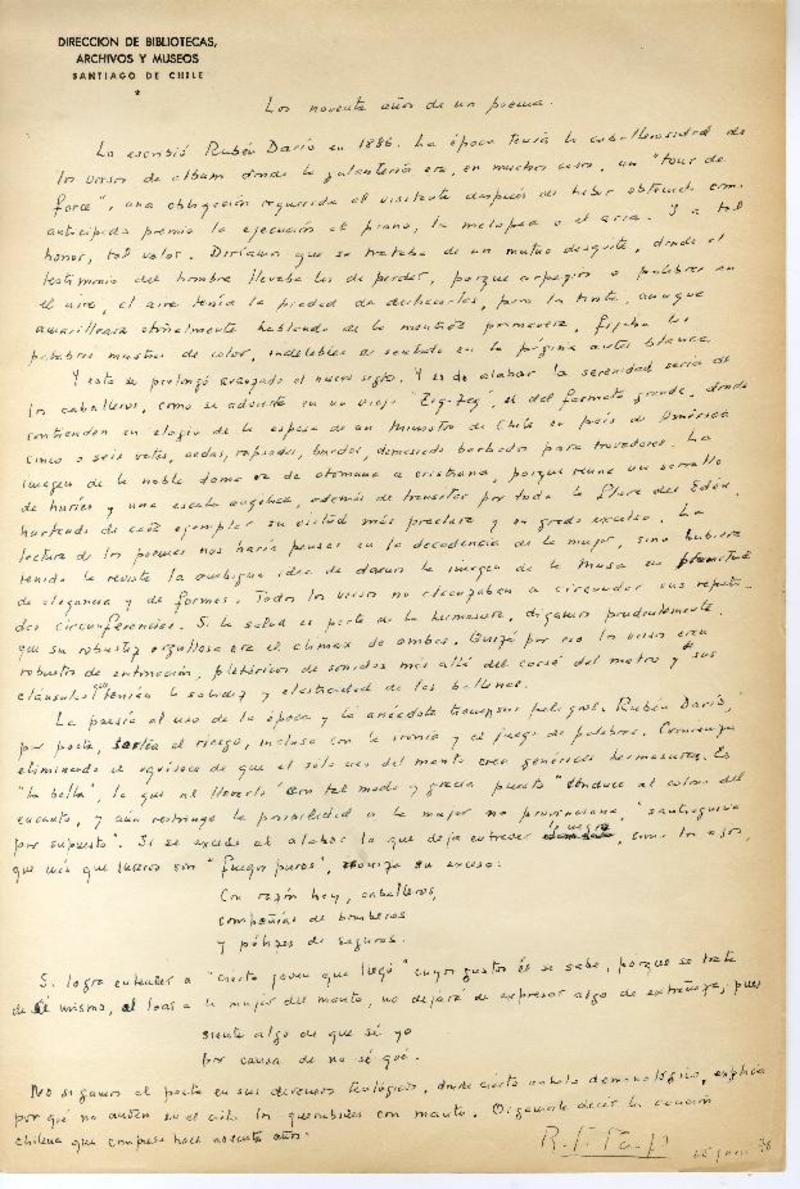 DIRECCION DE BIBLIOTECAS,
ARCHIVOS Y MUSEOS
SANTIAGO DE CHILE
Los noventa años de un poema.
Lo escribió Rubén Darío en 1886. La época tenía la caballerosidad de
los versos de album donde la galantería era, en muchos casos, un "tour de
force", una obligación requerida al visitante después de haber obtenido como
anticipado premio la ejecución al piano, la melopea o el aria. Y a tal
honor, tal valor. Diríamos que se trataba de un mutuo desquite, donde el
testimonio del hombre llevaba las de perder, porque arpegios o palabras en
el aire, el aire tenía la piedad de deshacerlos, pero la tinta, aunque
amarilleara otoñalmente hablando de la primavera, fijaba las
palabras mustias de color, indelebles en la página antes blanca.
Y esto se prolongó avanzado el nuevo siglo. Y es de alabar la serenidad seria de
los caballeros, como se advierte en un viejo "Zig-Zag", el del formato grande, donde
contienden en elogio de la esposa de un Ministro de Chile en país de América
cinco o seis vates, aedas, rapsodas, bardos, demasiado barbados para trovadores. La
imagen de la noble dama va de otomana a cristiana, porque reune un serrallo
de huríes y una escala angélica, además de transitar por toda la Flora del Edén,
hurtando de cada ejemplar su virtud más preclara y su grado excelso. La
lectura de los poemas nos haría pensar en la decadencia de la mujer, si no hubiera
tenido la revista la ambigua idea de darnos la imagen de la Musa en plenitud
de elegancia y de formas. Todos los versos no alcanzaban a circundar sus repeti-
das circunferencias. Si la salud es parte de la hermosura, digamos prudentemente,
que su robustez orgullosa era el climax de ambas. Quizá por eso los versos eran
robustos de entonación, pletóricos de sonidos más allá del corsé del metro y sus
cláusulas que tenían la solidez y elasticidad de las ballenas.
La poesía al uso de la época y la anécdota tienen sus peligros. Rubén Darío,
por poeta, sortea el riesgo, incluso con la ironía y el juego de palabras. Comienza
eliminando el equívoco de que el sólo uso del manto crea genéricas hermosuras. Es
"la bella", la que al llevarlo "con tal modo y gracia puesto" conduce al colmo del
encanto, y aún restringe la posibilidad a la mujer no provinciana, "santiaguina
por supuesto". Si se excede al alabar lo que deja entrever lo negro, como los ojos,
que más que luceros son "fuegos puros", su exceso:
Con razón hay, caballeros,
compañías de bomberos
y pólizas de seguros.
Si logra entender a "cierto joven que llegó" cuyos gustos él se sabe, porque se trata
de él mismo, al loar a la mujer del manto, no dejará de expresar algo de extrañeza, pues
siente algo de que sé yo
por causa de no sé qué.
No sigamos al poeta en sus devaneos teológicos, donde cierto demonológico, explica
por qué no anden en el cielo los querubines con manto. Oigamosle decir la canción
chilena que compuso hace noventa años.